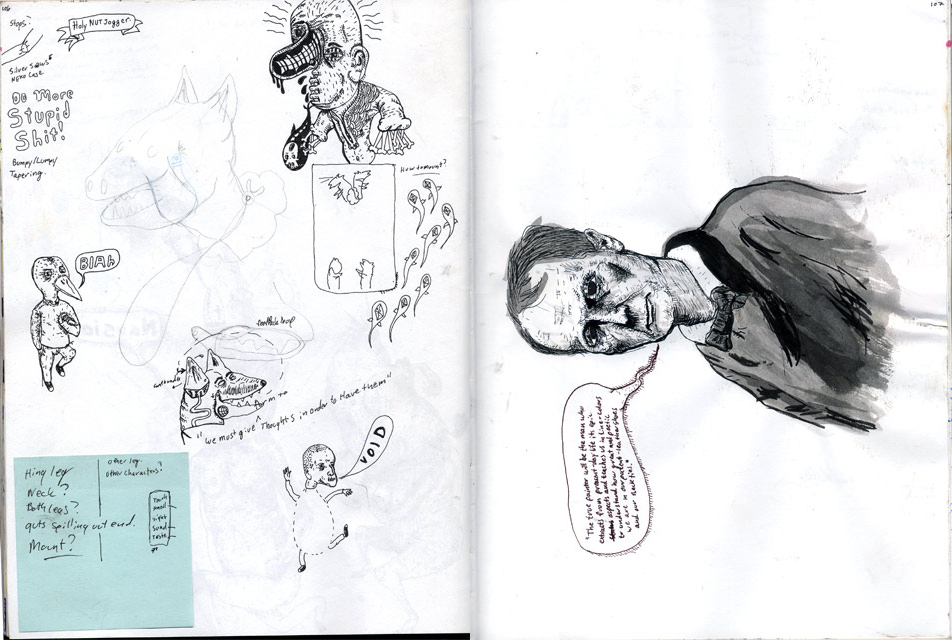 106
Stops
Holy NUT Jogger.
Silver Saws
NEKO Case
Do More
Stupid
Shit!
Bumpy/Lumpy
Tapering.
How to mount?
BlAh
"we must give form to Thoughts in order to Have them"
VOID
Hing leg
Neck?
Both Legs?
guts spilling out end.
Mount?
other leg.
other Characters?
Touch
Smell
Sight
Sound
Taste
107
"The true painter will be the man who
extracts from present-day life its epic
aspects and teaches us in lines + colors
to understand how great and poetic
we are in our patent-leather shoes
and our neckties."